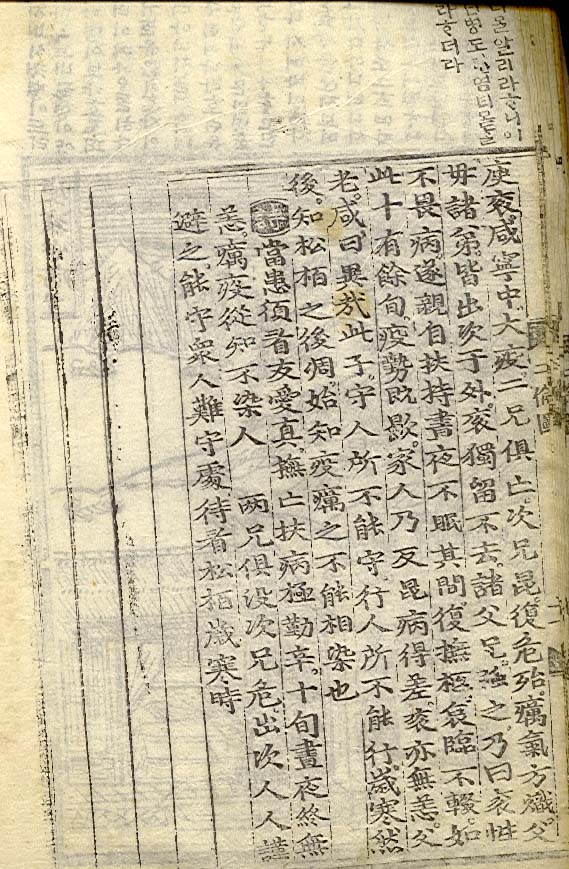 몯알리라ᄒᆞ니이
병도뎐염티몯ᄒᆞᆯ
라ᄒᆞ더라
庾袞。咸寧中大疫。二兄俱亡。次兄毗復危殆。癘氣方熾。父
母諸弟。皆出次于外。袞獨留不去。諸父兄。强之。乃曰袞性
不畏病。遂親自扶持。晝夜不眠。其間復撫柩。哀臨不輟。如
此十有餘旬。疫勢旣歇。家人乃反。毗病得差。袞亦無恙。父
老。咸曰異哉此子。守人所不能守。行人所不能行。歲寒然
後。知松栢之後凋。始知疫癘之不能相染也
詩 當患須看友愛眞。撫亡扶病極勤辛。十旬晝夜終無
恙。癘疫從知不染人 兩兄俱沒次兄危出次人人謹
避之能守衆人難守處待看松栢歲寒時